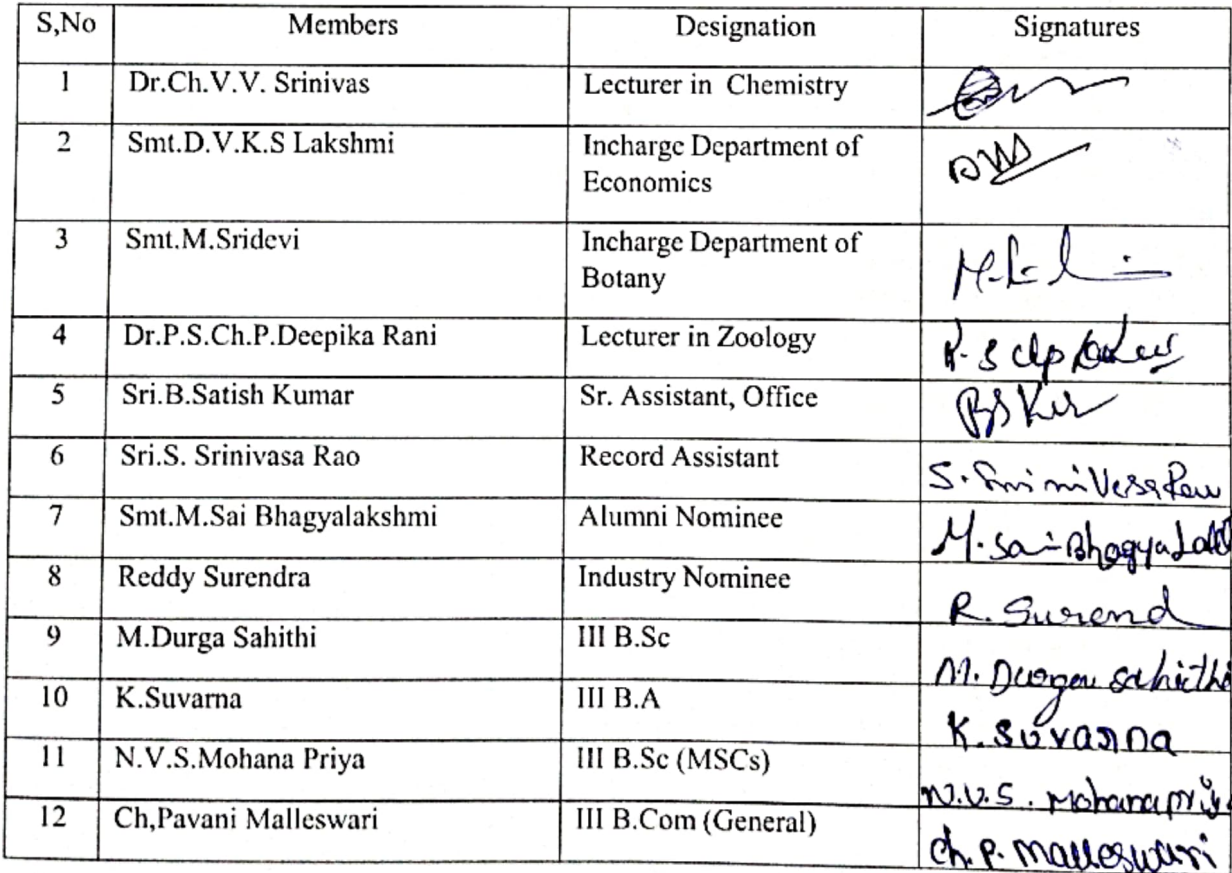 S,No Members Designation Signatures
1 Dr.Ch.V.V. Srinivas Lecturer in Chemistry
2 Smt.D.V.K.S Lakshmi Incharge Department of
Economics
3 Smt.M.Sridevi Incharge Department of
Botany
4 Dr.P.S.Ch.P.Deepika Rani Lecturer in Zoology
5 Sri.B.Satish Kumar Sr. Assistant, Office
6 Sri.S. Srinivasa Rao Record Assistant
S. Srinivasa Rao
7 Smt.M.Sai Bhagyalakshmi Alumni Nominee
M. Sai Bhagya
8 Reddy Surendra Industry Nominee
R. Surend
9 M.Durga Sahithi III B.Sc
M. Durga Sahithi
10 K.Suvarna III B.A
K. Suvarna
11 N.V.S.Mohana Priya III B.Sc (MSCs)
N.V.S. Mohanapriya
12 Ch,Pavani Malleswari III B.Com (General)
Ch. P. Malleswari